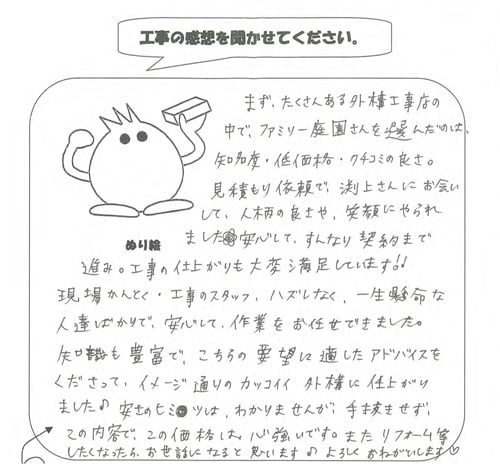 工事の感想を聞かせてください。
まず、たくさんある外構工事店の
中で、ファミリー庭園さんを選んだのは、
知名度・低価格・クチコミの良さ。
見積もり依頼で、渕上さんにお会い
して、人柄の良さや、笑顔にやられ
ました 安心して、すんなり契約まで
ぬり絵
進み。工事の仕上がりも大変満足しています!!
現場かんとく・工事のスタッフ、ハズレなく、一生懸命な
人達ばかりで、安心して、作業をお任せできました。
知識も豊富で、こちらの要望に適したアドバイスを
くださって、イメージ通りのカッコイイ外構に仕上がり
ました♪ 安さのヒミツは、わかりませんが、手抜きせず、
この内容で、この価格は、心強いです。またリフォーム等
したくなったら、お世話になると思います♪ よろしくおねがいします♡